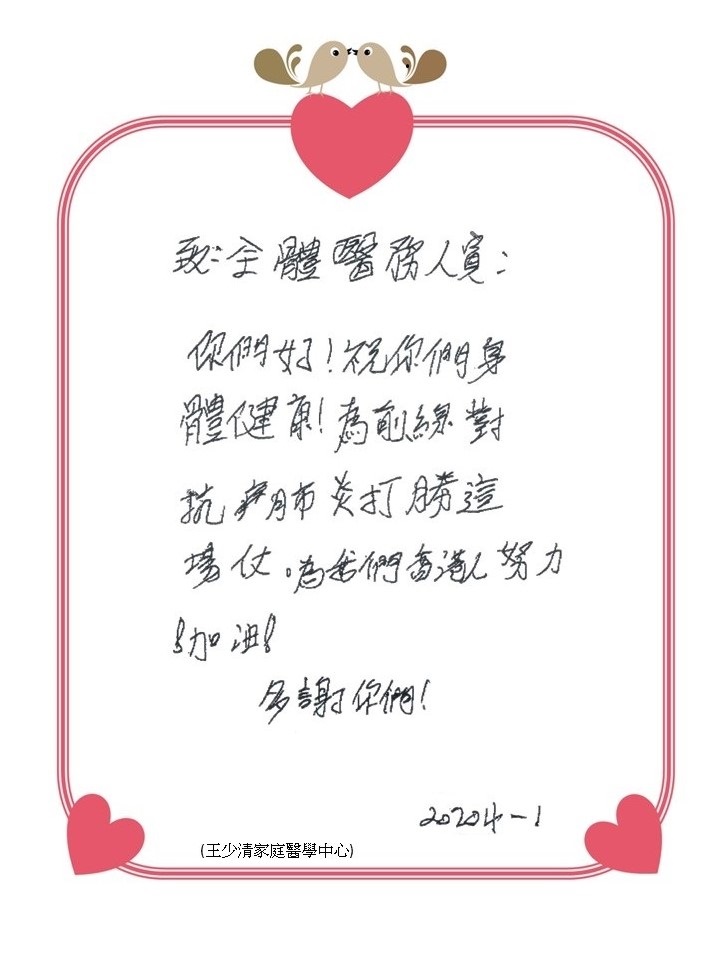 致:全體醫務人員:
你們好!祝你們身
體健康!為前線對
抗肺炎打勝這
場仗。為我們香港人努力
!加油!
多謝你們!
2020 4-1
(王少清家庭醫學中心)